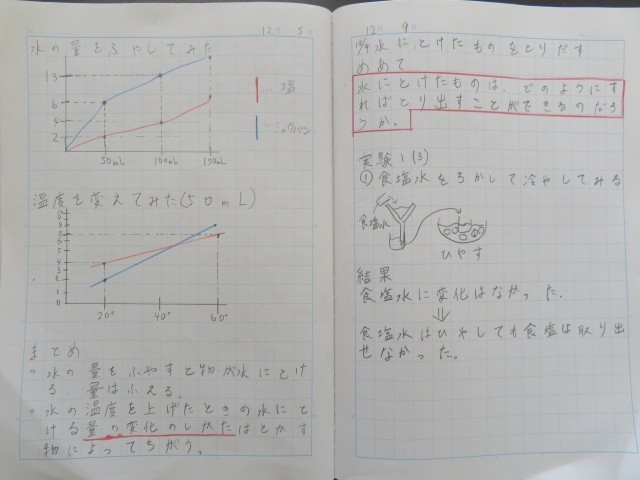 12 5
水の量をふやしてみた
13
6
4
2
50mL 100mL 150mL
…塩
…ミョウバン
温度を変えてみた(50mL)
20° 40° 60°
まとめ
○水の量をふやすと物が水にとけ
る量はふえる。
○水の温度を上げたときの水にと
ける量の変化のしかたはとかす
物によってちがう。
12 9
水にとけたものをとりだす
めあて
水にとけたものは、どのようにす
ればとり出すことができるのだろ
うか。
実験1(3)
①食塩水をろかして冷やしてみる
食塩水
ひやす
結果
食塩水に変化はなかった.
⇓
食塩水はひやしても食塩は取り出
せなかった。